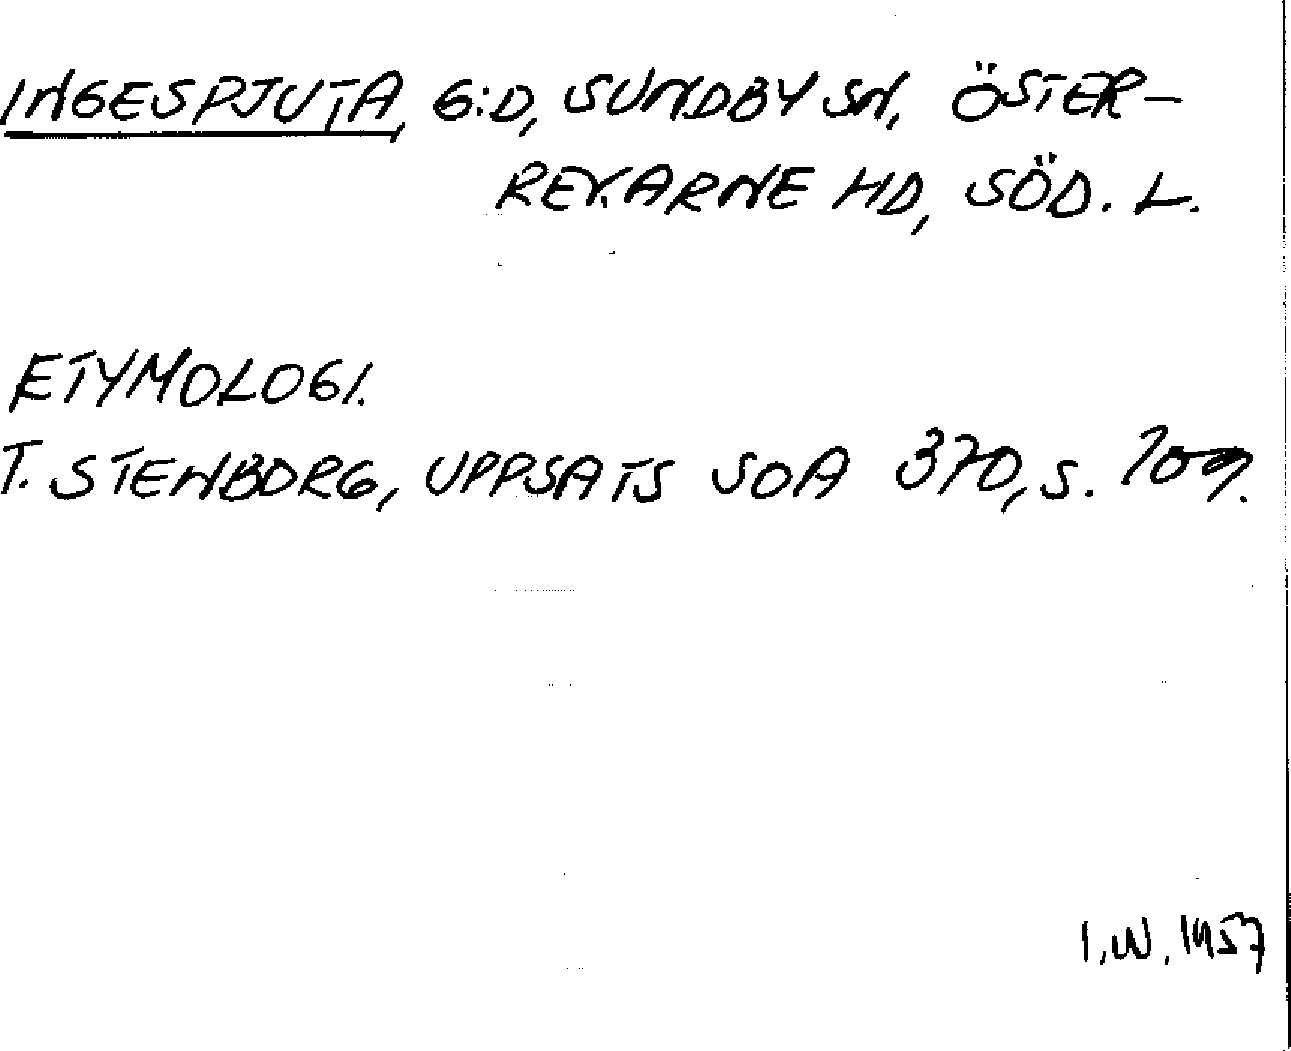 INGESPJUTA, G:D, SUNDBY SN, ÖSTER-
REKARNE HD, SÖD. L.
ETYMOLOGI.
T. STENBORG, UPPSATS SOA 370, s. 109.
I.W. 1957